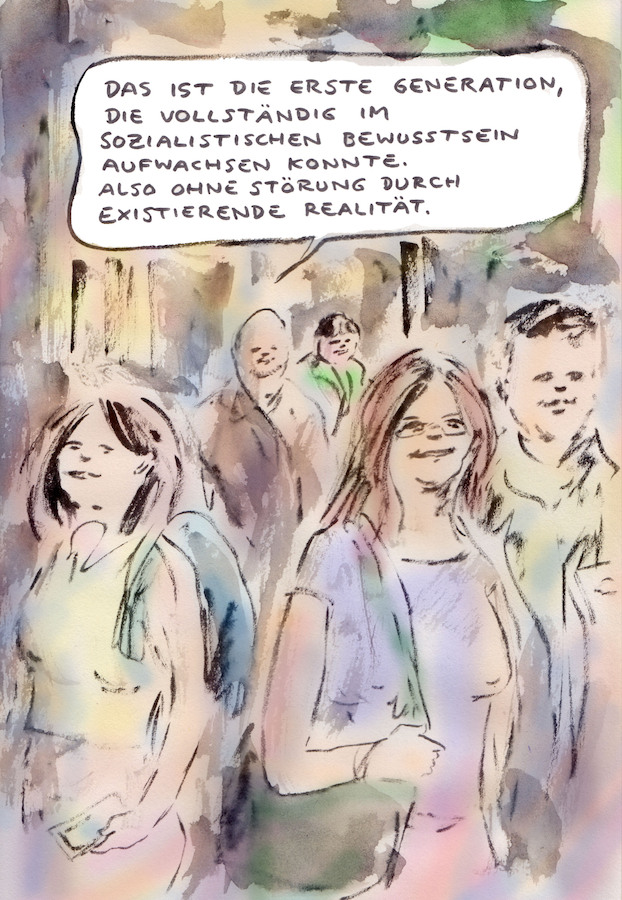 DAS IST DIE ERSTE GENERATION,
DIE VOLLSTÄNDIG IM
SOZIALISTISCHEN BEWUSSTSEIN
AUFWACHSEN KONNTE.
ALSO OHNE STÖRUNG DURCH
EXISTIERENDE REALITÄT.